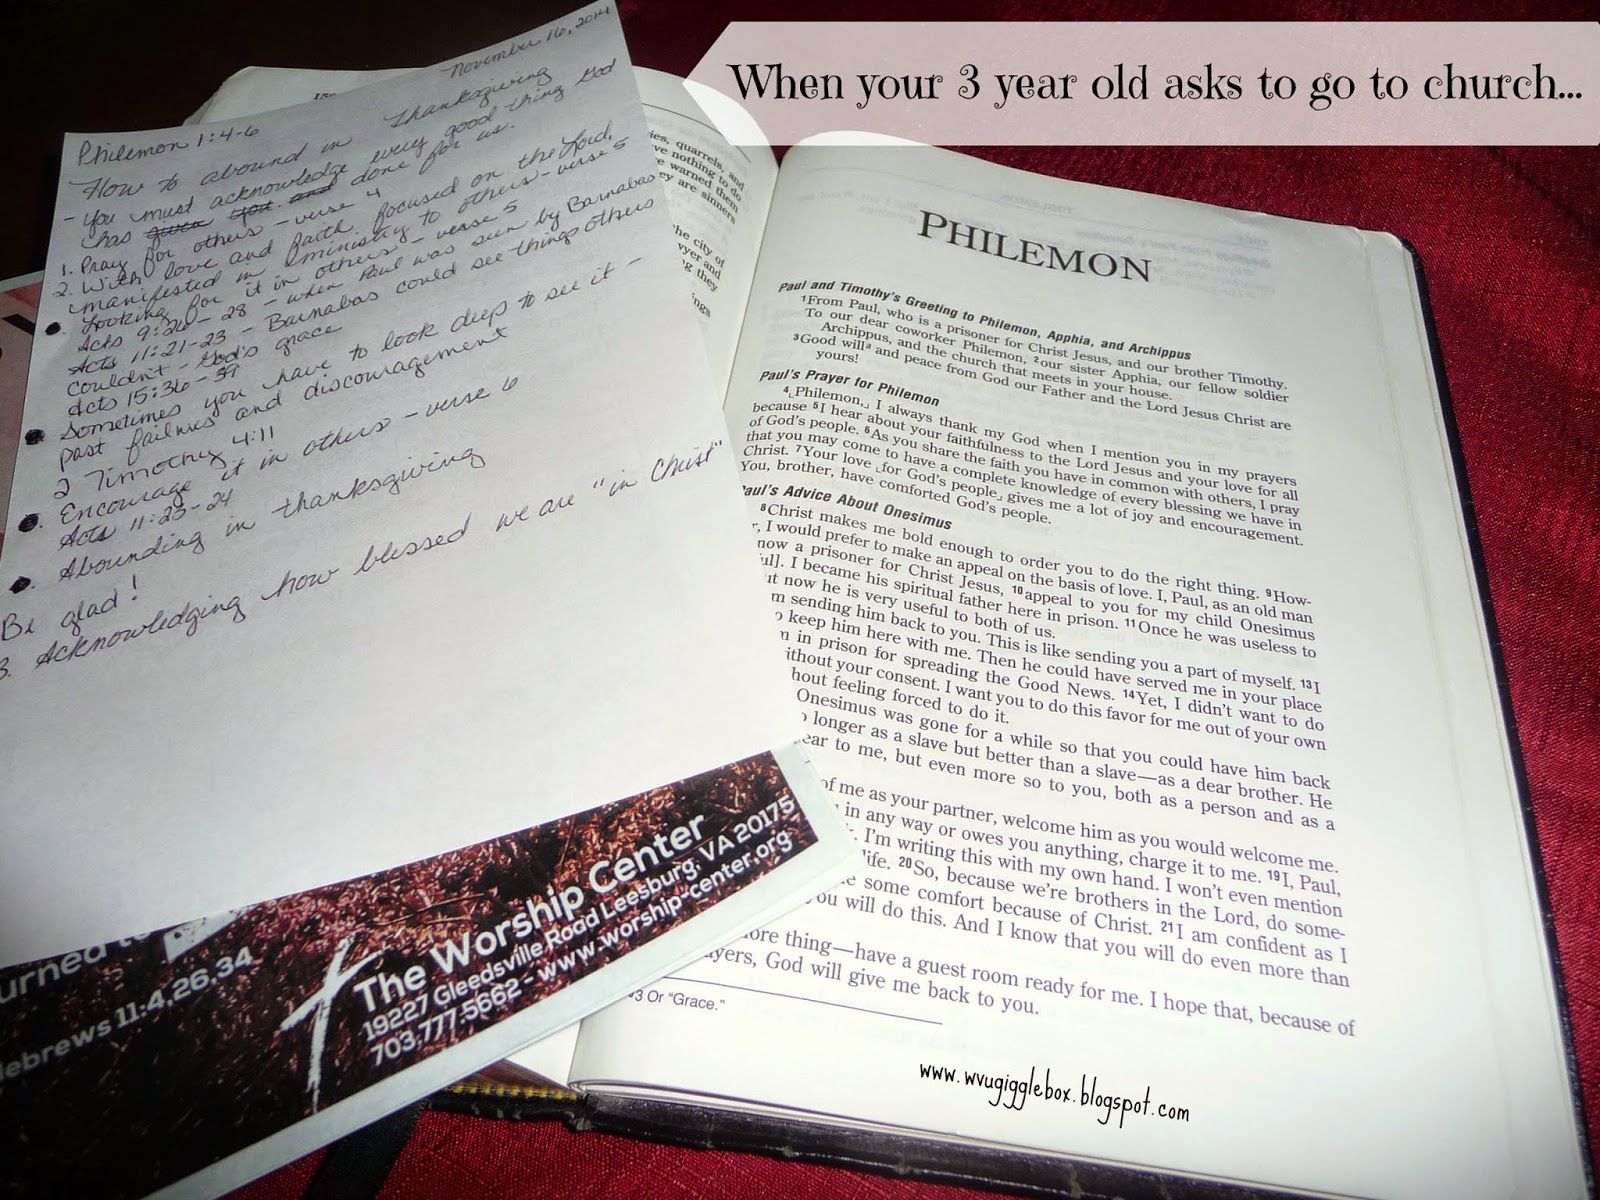 When your 3 year old asks to go to church...
November 16, 2014
Philemon 1:4-6
How to abound in Thanksgiving
- You must acknowledge every good thing God
has given you and done for us.
1. Pray for others - verse 4
2. With love and faith focused on the Lord,
manifested in ministry to others - verse 5
Looking for it in others - verse 5
Acts 9:26-28 - when Paul was seen by Barnabas
Acts 11:21-23 - Barnabas could see things others
couldn't - God's grace
Acts 15:36-39
Sometimes you have to look deep to see it -
past failures and discouragement
2 Timothy 4:11
Encourage it in others - verse 6
Acts 11:23-24
Abounding in thanksgiving
Be glad!
3. Acknowledging how blessed we are "in Christ"
The Worship Center
19227 Gleedsville Road Leesburg, VA 20175
703.777.5662 - www.worship-center.org
urned to
ebrews 11:4,26,34
ies, quarrels, and
ve nothing to do
e warned them
ey are sinners
he city of
wyer and
g they
ngs
PHILEMON
Paul and Timothy's Greeting to Philemon, Apphia, and Archippus
1From Paul, who is a prisoner for Christ Jesus, and our brother Timothy.
To our dear coworker Philemon, 2our sister Apphia, our fellow soldier
Archippus, and the church that meets in your house.
3Good willa and peace from God our Father and the Lord Jesus Christ are
yours!
Paul's Prayer for Philemon
4⌞Philemon,⌟ I always thank my God when I mention you in my prayers
because 5I hear about your faithfulness to the Lord Jesus and your love for all
of God's people. 6As you share the faith you have in common with others, I pray
that you may come to have a complete knowledge of every blessing we have in
Christ. 7Your love ⌞for God's people⌟ gives me a lot of joy and encouragement.
You, brother, have comforted God's people.
aul's Advice About Onesimus
8Christ makes me bold enough to order you to do the right thing. 9How-
r, I would prefer to make an appeal on the basis of love. I, Paul, as an old man
now a prisoner for Christ Jesus, 10appeal to you for my child Onesimus
ul]. I became his spiritual father here in prison. 11Once he was useless to
ut now he is very useful to both of us.
m sending him back to you. This is like sending you a part of myself. 13I
o keep him here with me. Then he could have served me in your place
m in prison for spreading the Good News. 14Yet, I didn't want to do
ithout your consent. I want you to do this favor for me out of your own
hout feeling forced to do it.
Onesimus was gone for a while so that you could have him back
o longer as a slave but better than a slave—as a dear brother. He
ear to me, but even more so to you, both as a person and as a
of me as your partner, welcome him as you would welcome me.
in any way or owes you anything, charge it to me. 19I, Paul,
I'm writing this with my own hand. I won't even mention
life. 20So, because we're brothers in the Lord, do some-
e some comfort because of Christ. 21I am confident as I
ou will do this. And I know that you will do even more than
ore thing—have a guest room ready for me. I hope that, because of
ayers, God will give me back to you.
3 Or "Grace."
www.wvugigglebox.blogspot.com